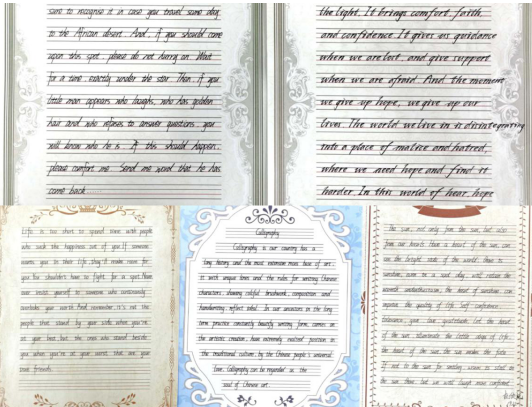 sure to recognise it in case you travel some day
to the African desert. And, if you should come
upon this spot, please do not hurry on. Wait
for a time, exactly under the star. Then, if you
little man appears who laughs, who has golden
hair and who refuses to answer questions, you
will know who he is. If this should happen,
please comfort me. Send me word that he has
come back.....
the light. It brings comfort, faith
and confidence. It gives us guidance
when we are lost, and give support
when we are afraid. And the moment
we give up hope, we give up our
lives. The world we live in is disintegrating
into a place of malice and hatred,
where we need hope and find it
harder. In this world of fear, hope
Life is too short to spend time with people
who suck the happiness out of you. If someone
wants you in their life, they'll make room for
you. You shouldn't have to fight for a spot. Never,
ever insist yourself to someone who continuously
overlooks your worth. And remember, it's not the
people that stand by your side when you're
at your best, but the ones who stand beside
you when you're at your worst that are your
true friends.
Calligraphy
Calligraphy is our country has a
long history and the most extensive mass base of art.
it with unique lines and the rules for writing Chinese
characters, showing colorful brushwork, composition and
handwriting, reflect infed. In our ancestors in the long
term practice constantly beautify writing form, carries on
the artistic creation, have extremely exalted position in
the traditional culture, by the Chinese people's universal
love. Calligraphy can be regarded as the
soul of Chinese art.
the sun, not only from the sun, but also
from our hearts. Have a heart of the sun, can
see the bright side of the world; there is
sunshine, even in a sad day, will return the
warmth and enthusiasm; the heart of sunshine can
improve the quality of life. Self confidence
tolerance, your our gratitude. Let the heart
of the sun, illuminate the little drops of life.
the heart of the sun, the sun under the fate.
If not to the sun for smiling, warm is still in
the sun there, but we will laugh more confident